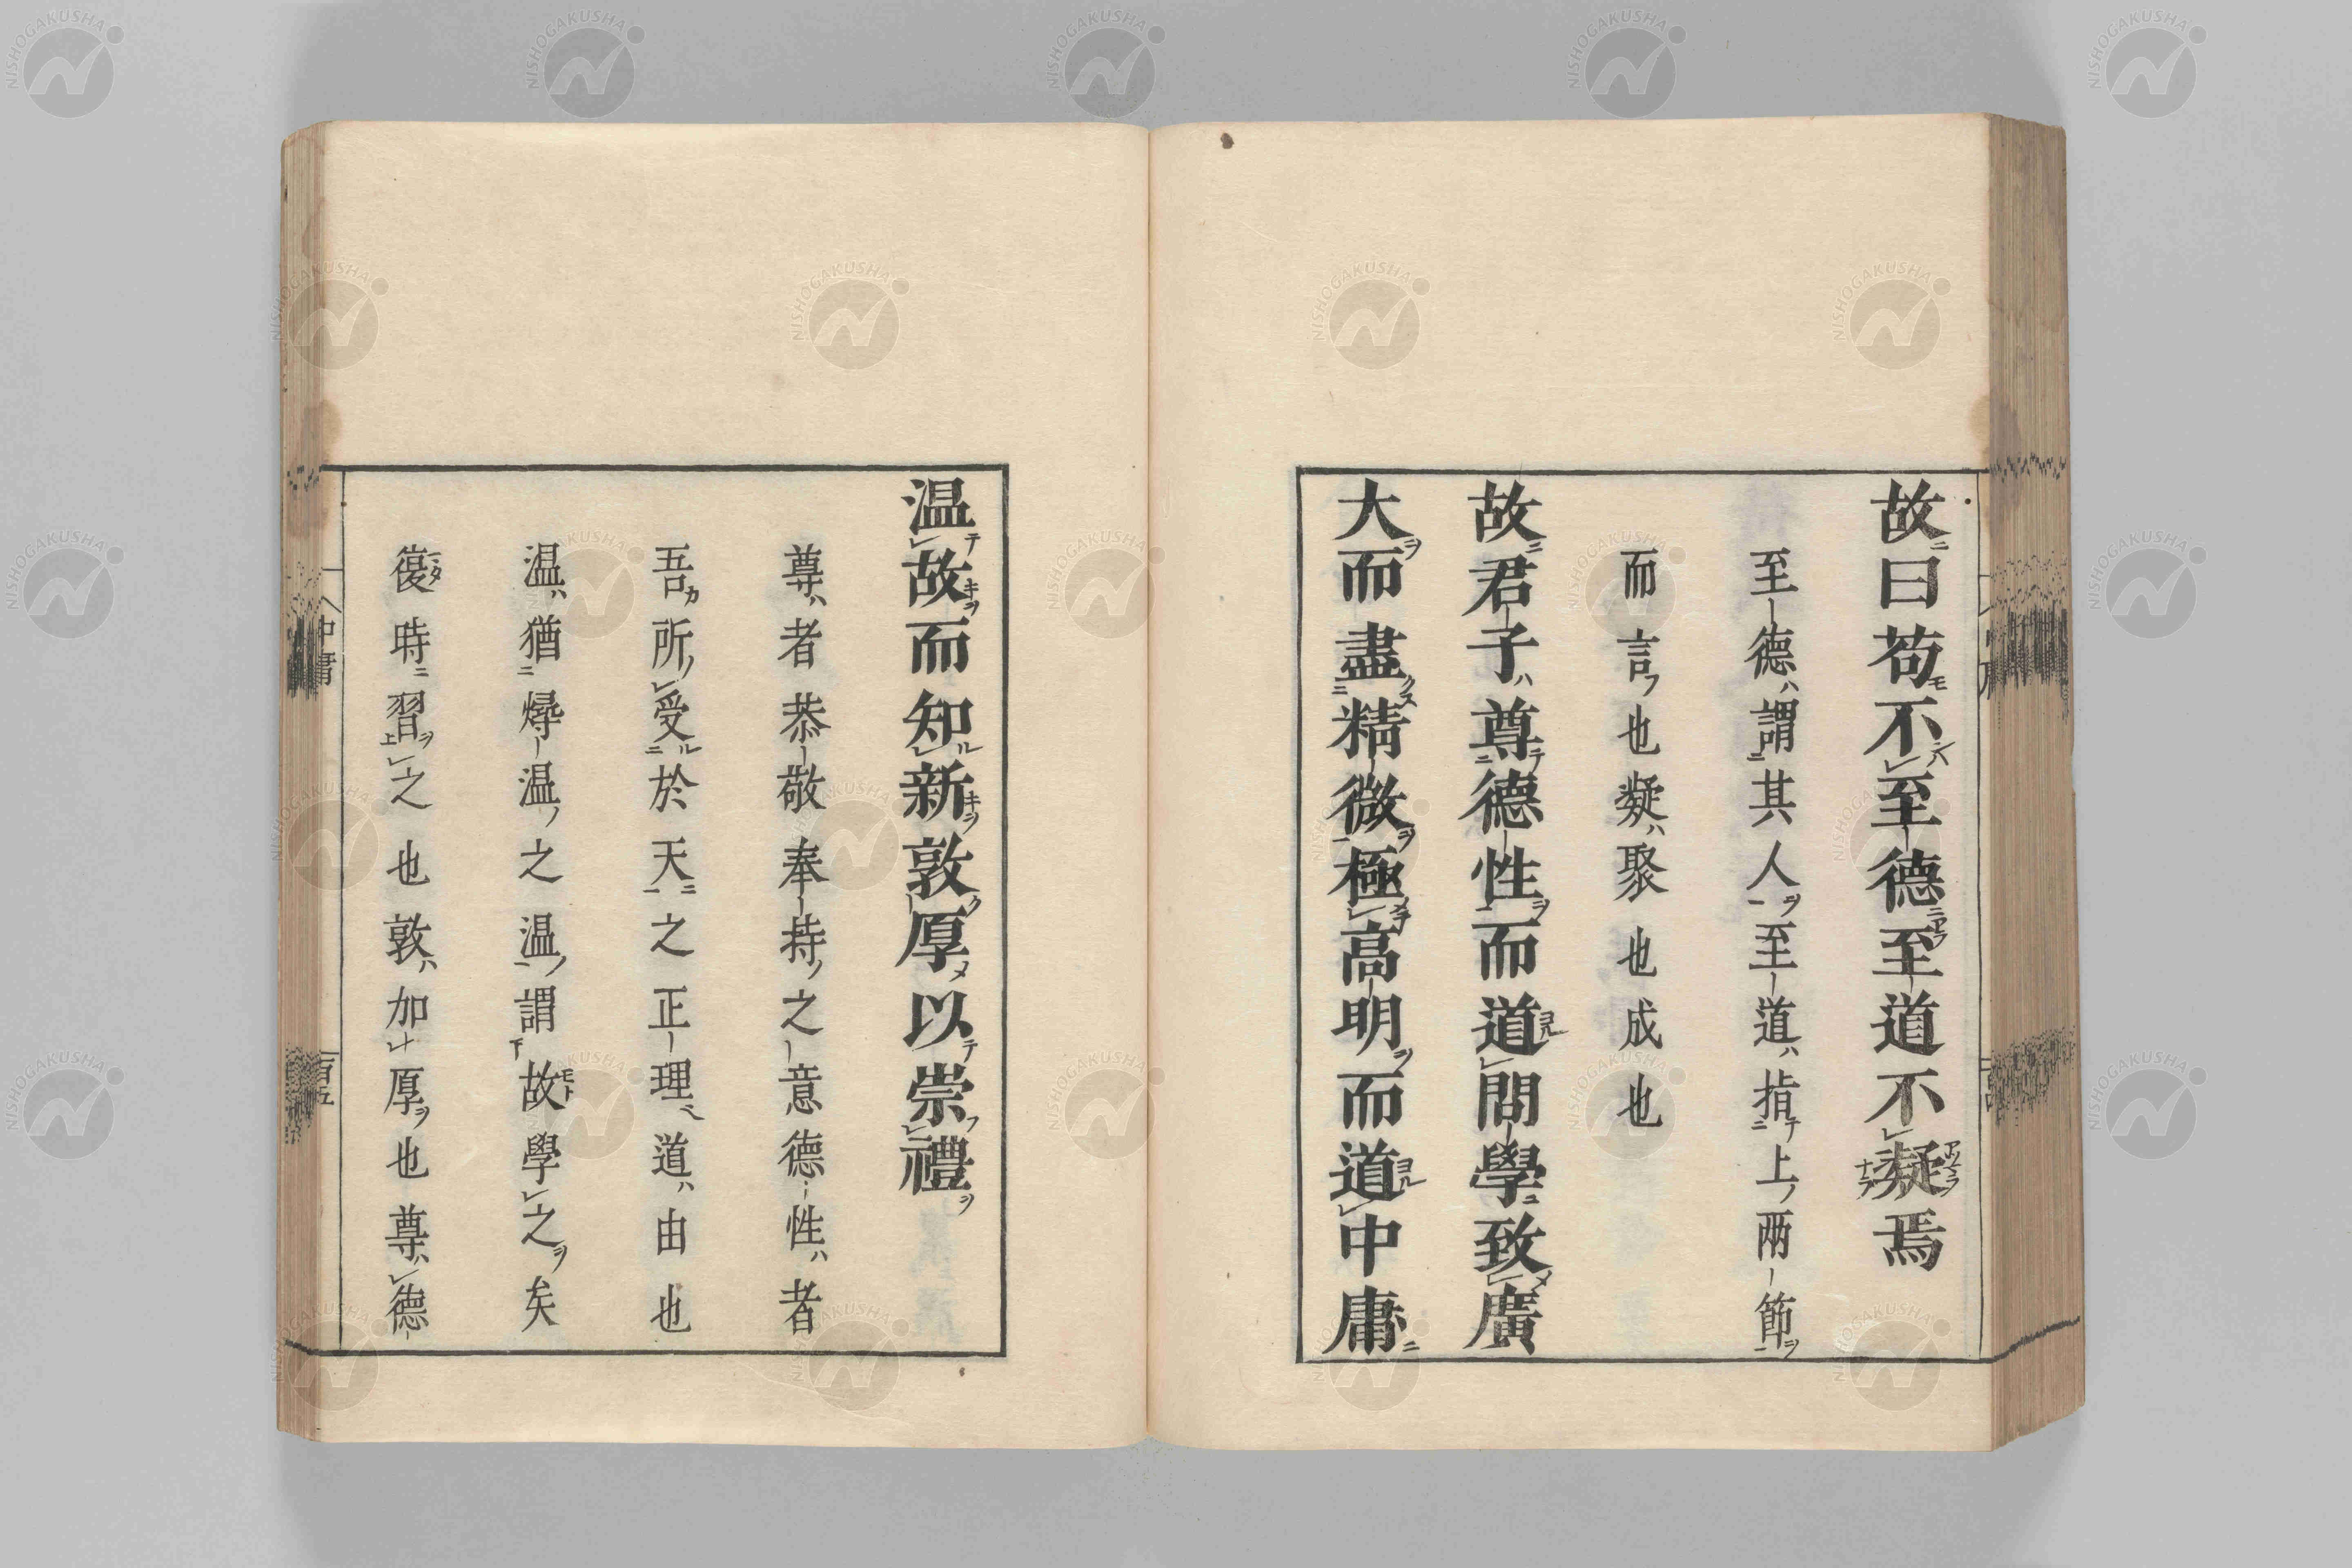 故曰苟不至德至道不凝焉
至德謂其人至道指上兩節
而言也凝聚也成也
故君子尊德性而道問學致廣
大而盡精微極高明而道中庸
温故而知新敦厚以崇禮
尊者恭敬奉持之意德性者
吾所受於天之正理道由也
温猶燖温之温謂故學之矣
復時習之也敦加厚也尊德
中庸
百五
NISHOGAKUSHA